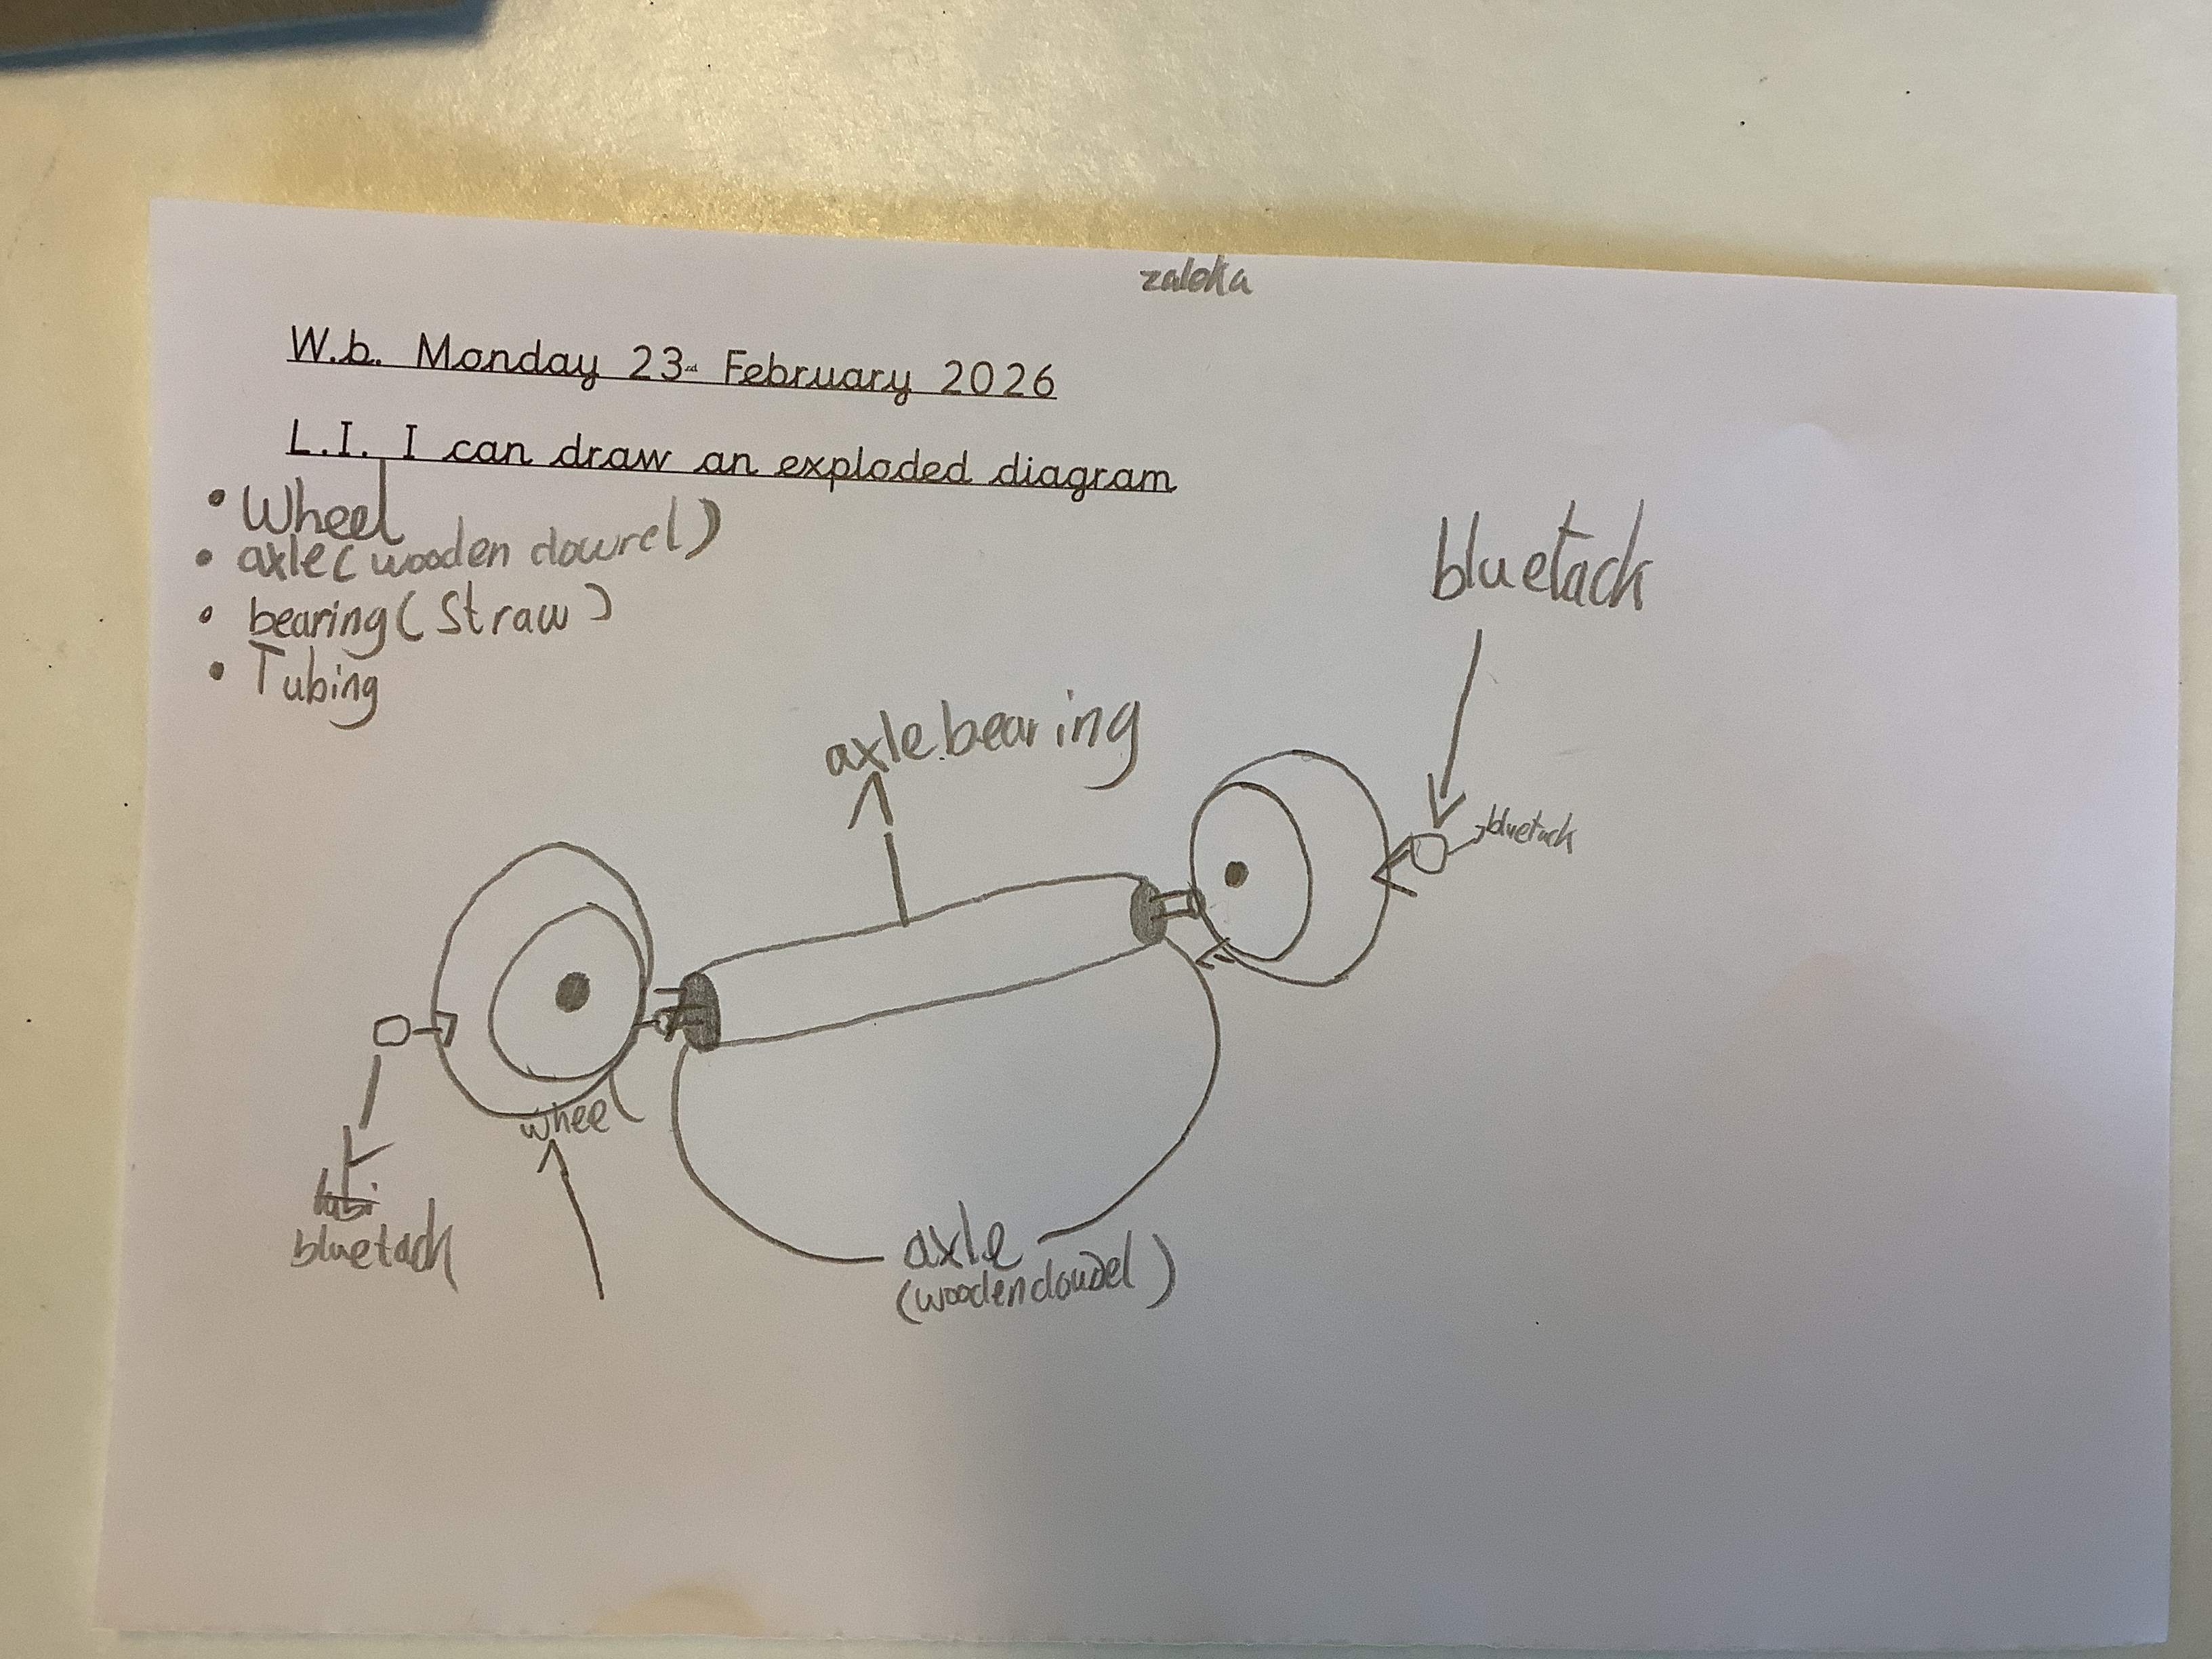 zaloka
W.b. Monday 23rd February 2026
L.I. I can draw an exploded diagram
• Wheel
• axle (wooden dowrel)
• bearing (Straw)
• Tubing
bluetack
axle bearing
bluetack
wheel
bluetack
axle
(wooden dowel)